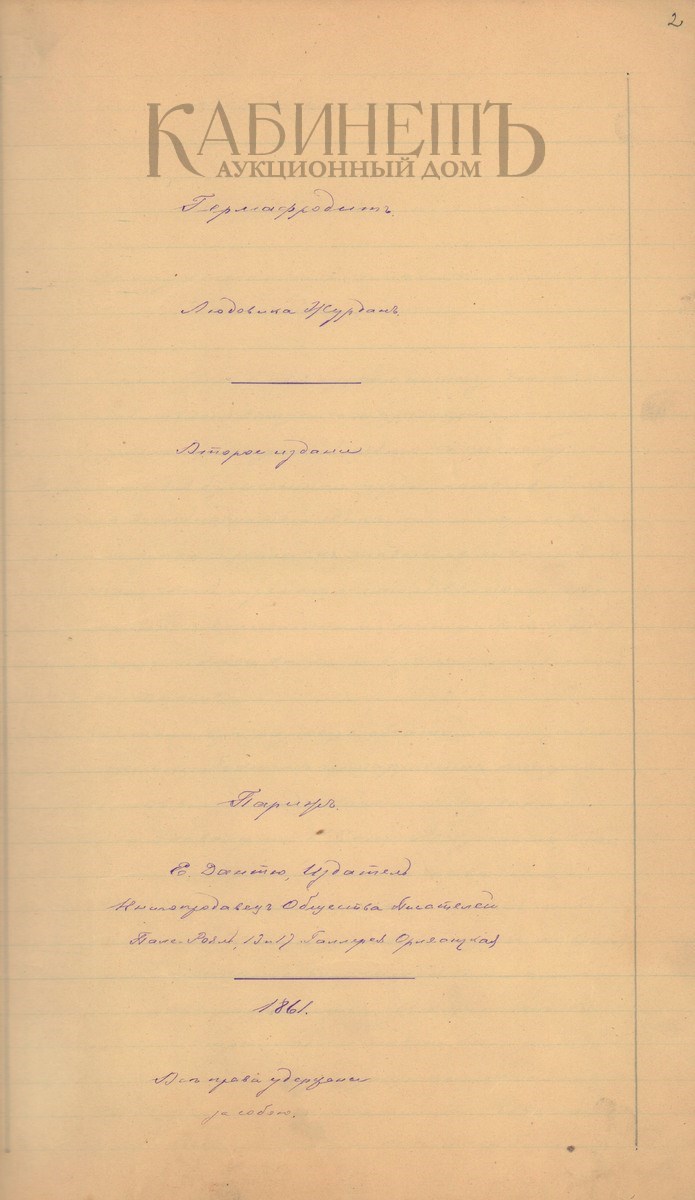 2
КАБИНЕТЪ
АУКЦИОННЫЙ ДОМ
Гермафродитъ.
Людовика Журданъ.
Второе изданіе
Парижъ.
Е. Дантю, Издатель
Книгопродавецъ Общества Писателей
Пале-Роял, 13 и 17 Галлерея Орлеанская
1861.
Всѣ права удержаны
за собою.